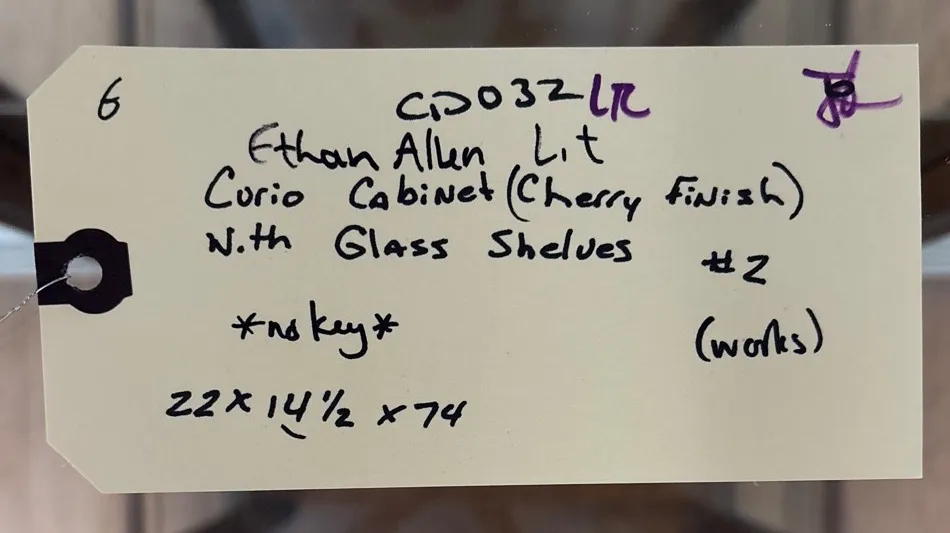 6
CD032LR
Ethan Allen Lit
Curio Cabinet (Cherry Finish)
With Glass Shelves
#2
*no key*
(works)
22 x 14 1/2 x 74